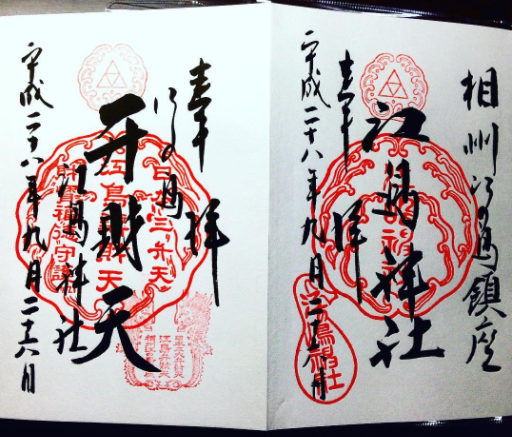 相州江の島鎮座
江島神社
奉拝
平成二十八年九月二十六日
江島神社
奉拝
江の島
弁財天
江島神社
平成二十八年九月二十六日